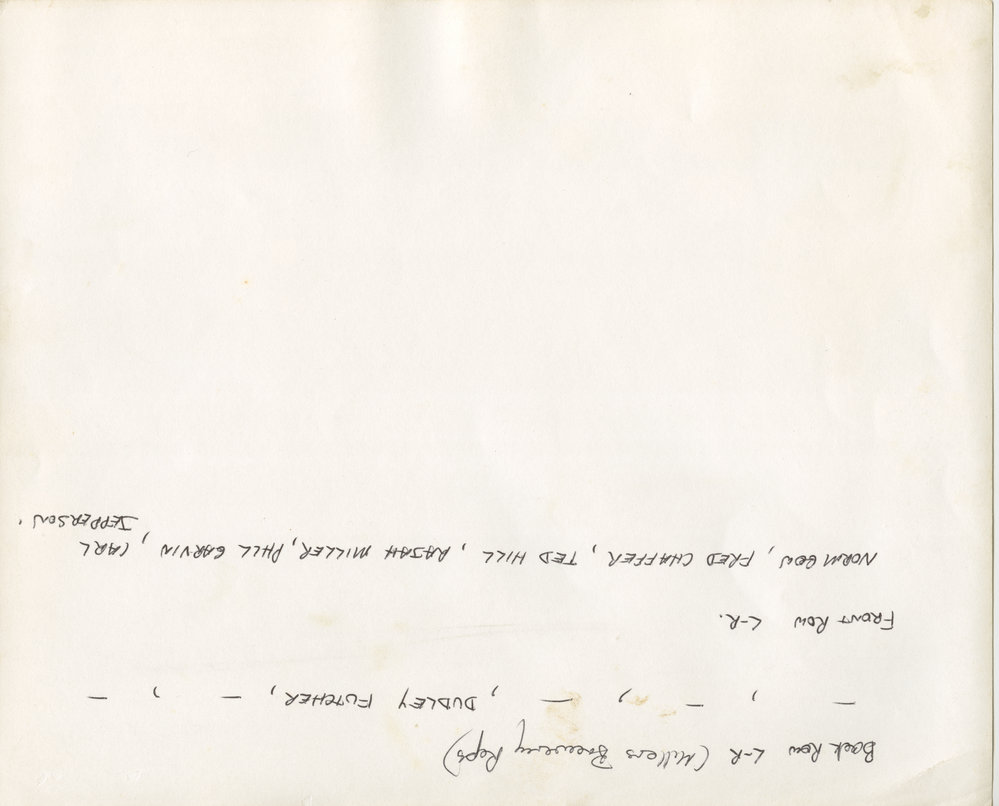 Back Row L-R (Millers Brewery Reps)
— , — , — , DUDLEY FUTCHER, — , —
FRONT ROW L-R.
NORM GOW, FRED CHAFFER, TED HILL, RAJAH MILLER, PHIL GARVIN, CARL
JEPPERSON.